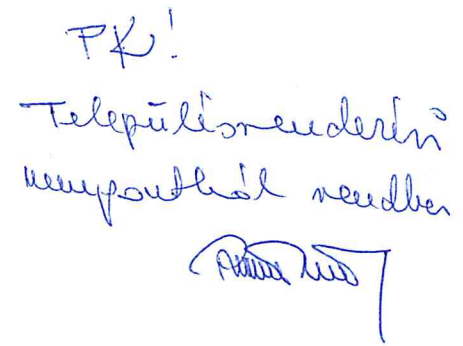 PK!
Településrendezési
szempontból rendben